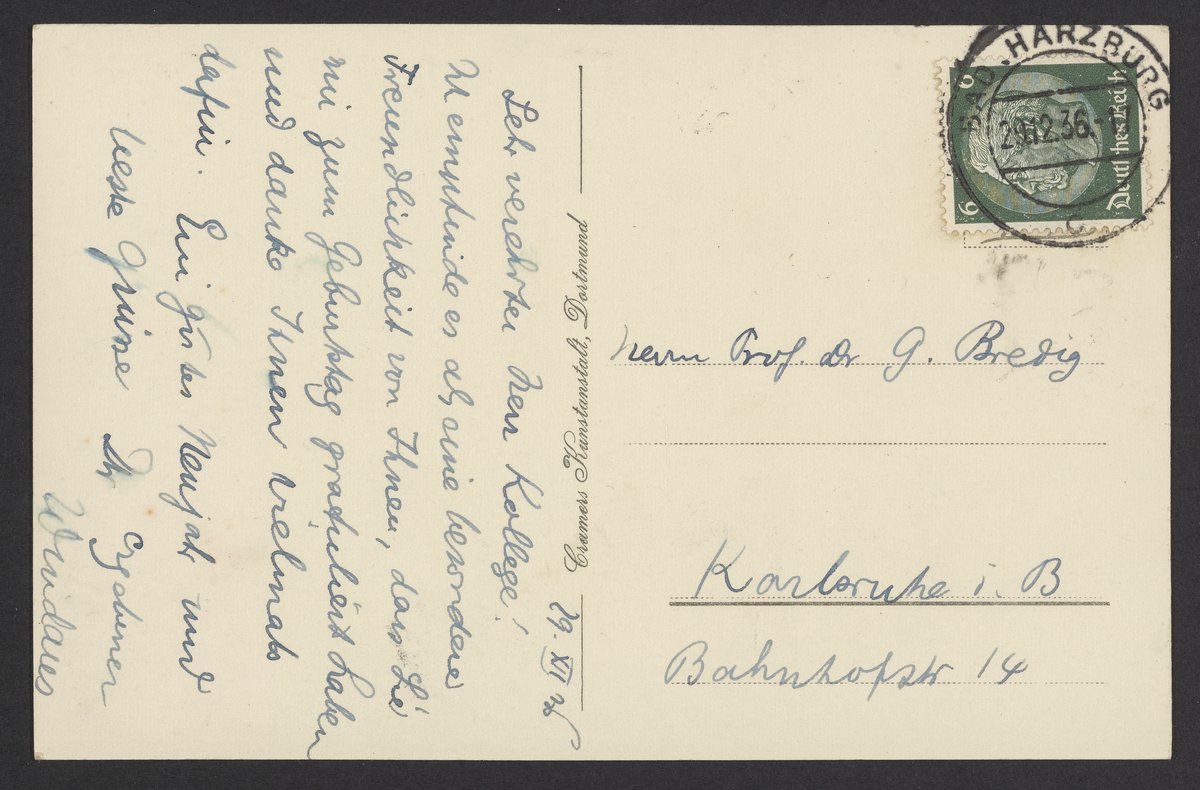 29. XII 36
Sehr verehrter Herr Kollege!
Ich empfinde es als eine besondere
Freundlichkeit von Ihnen, dass Sie
mir zum Geburtstag gratuliert haben
und danke Ihnen vielmals
dafür. Ein gutes Neujahr und
beste Grüsse Ihr
ergebener
Windaus
Cramers Kunstanstalt, Dortmund
BAD HARZBURG
29.12.36
c
6
6
Deutsches Reich
Herrn Prof. Dr G. Bredig
Karlsruhe i. B
Bahnhofstr 14